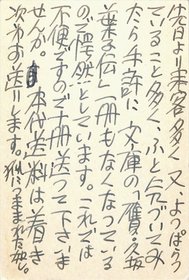 先日より来客多く、又、よっぱらっ
ていること多く、ふと気づいてみ
たら手許に文庫の贋・
葉子伝一冊もなくなっている
ので愕然としています。これでは
不便ですので十冊送って下さいま
せんか。本代送料は着き
次第お送りします。狐につままれたか。